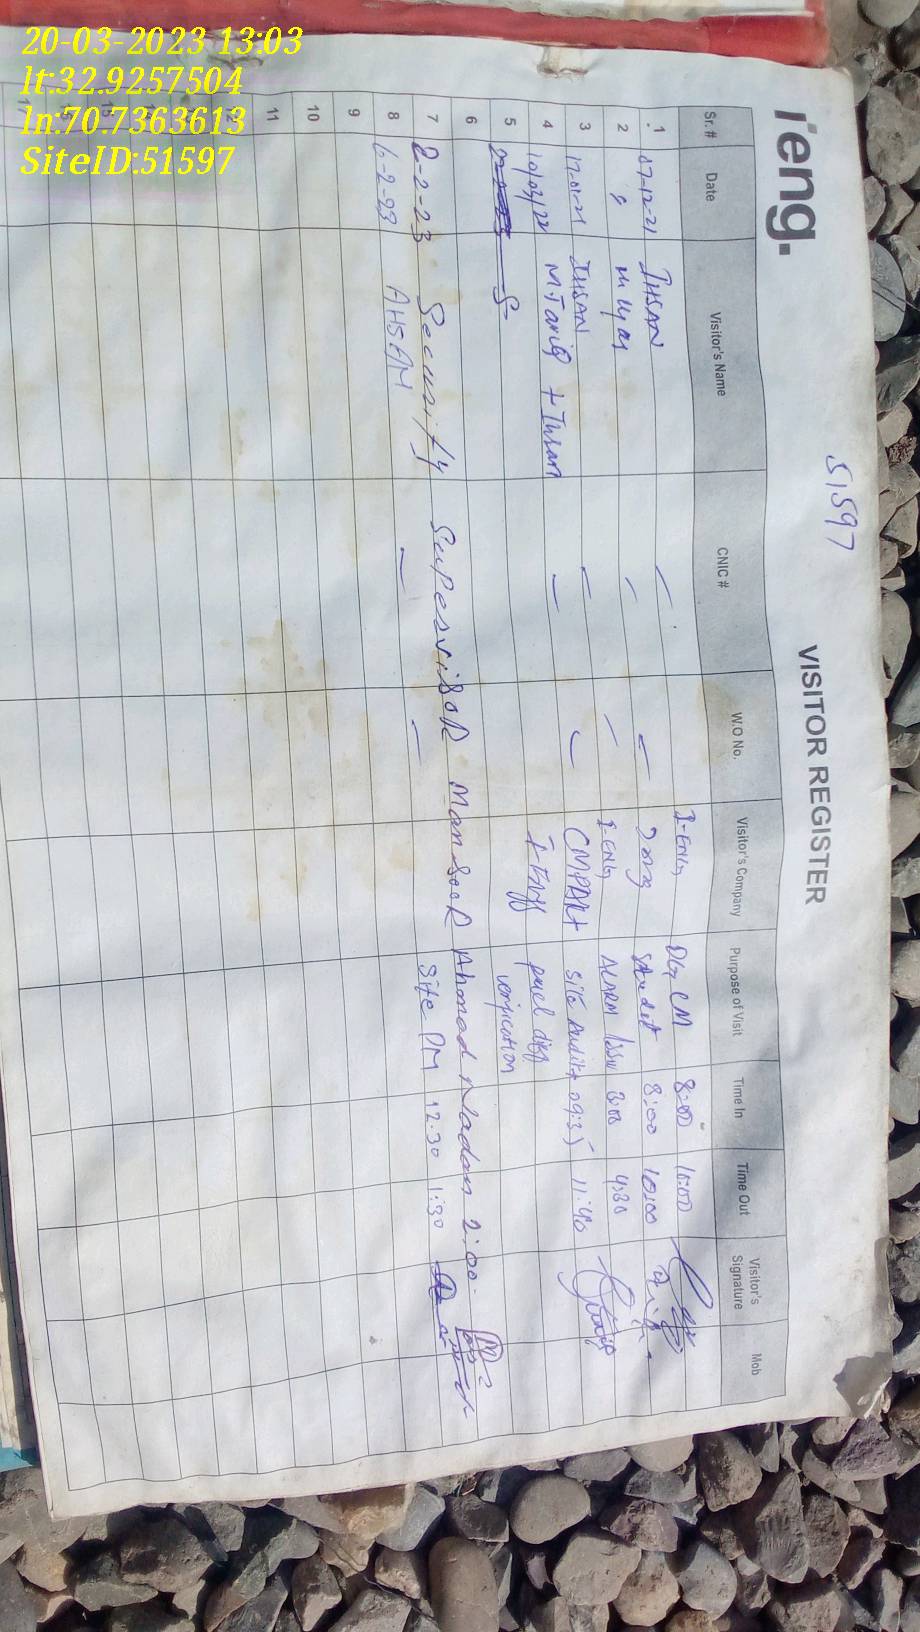 20-03-2023 13:03
lt:32.9257504
ln:70.7363613
SiteID:51597
i'eng.
51597
VISITOR REGISTER
Sr. # Date Visitor's Name CNIC # W.O No. Visitor's Company Purpose of Visit Time In Time Out Visitor's Signature Mob
1 07-12-21 IHSAN — I-ENG DG CM 8:00 10:00
2 — 8:00 10:00
3 17-01-21 IHSAN — — I-ENG ALARM 4:30
4 10/03/22 M.Tariq + Ihsan — — CMPAK + Site Audit + 09:35 11:40
verification
5
6
7 2-2-23 Security SupeRviSoR ManSooR Ahmad 2:00
8 6-2-23 AHSAN — — Site PM 12.30 1:30
9
10
11
12
17